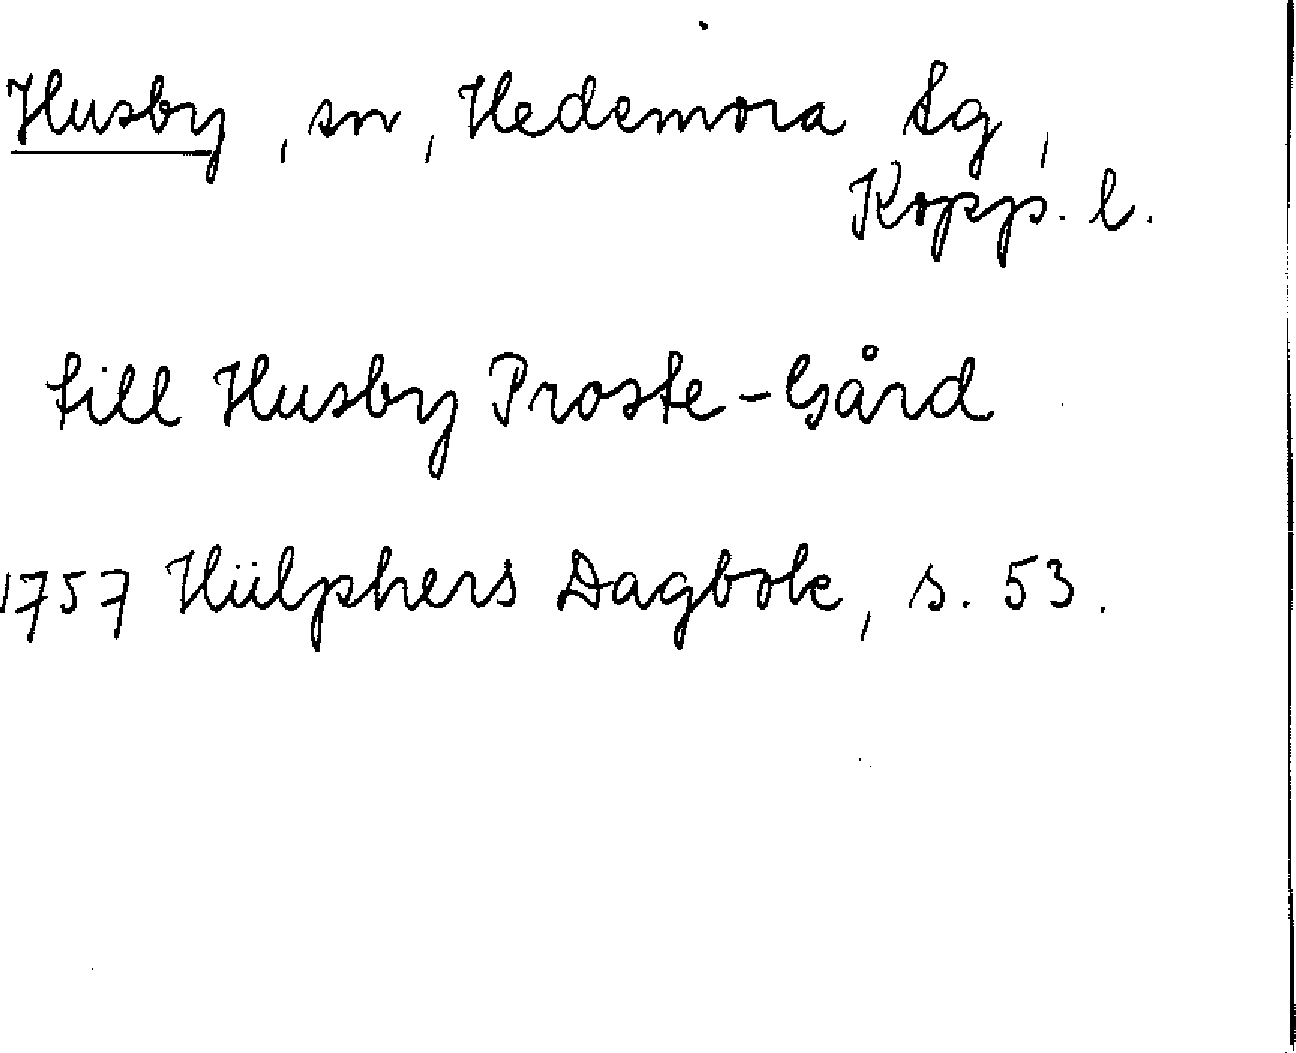 Husby, sn, Hedemora tg,
Kopp. l.
till Husby Proste-Gård
1757 Hülphers Dagbok, s. 53.